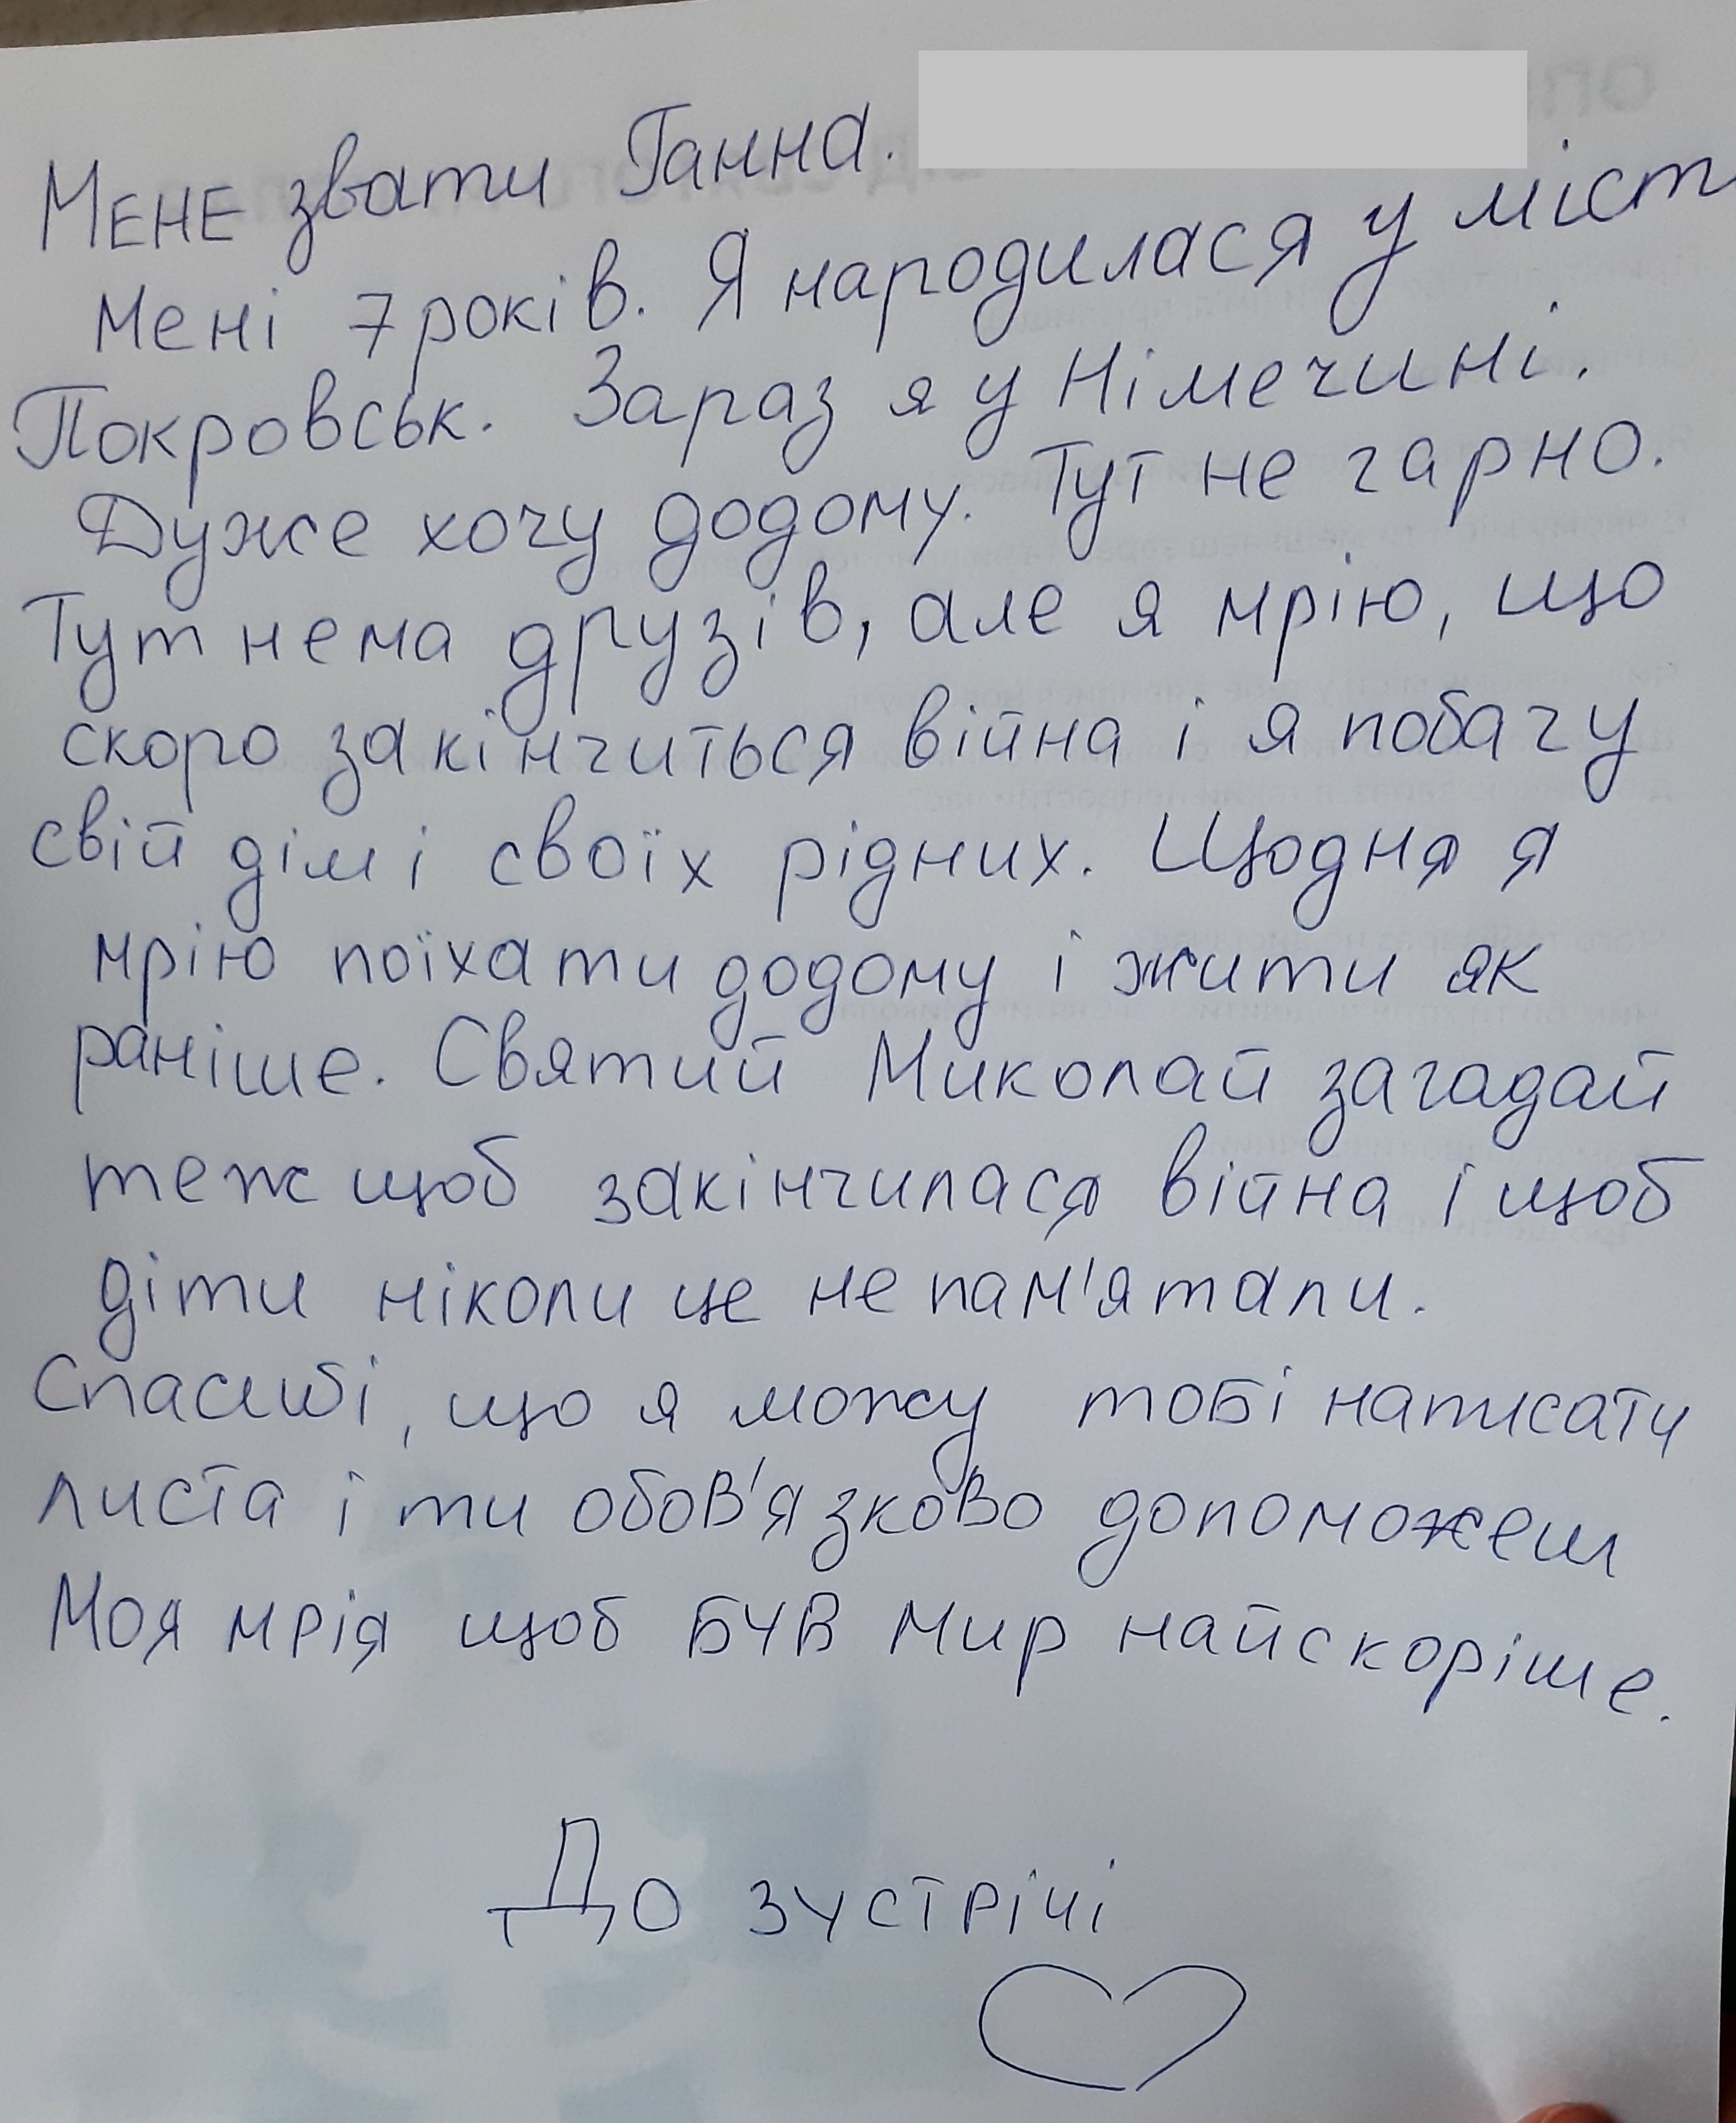 Мене звати Ганна.
Мені 7 років. Я народилася у міст
Покровськ. Зараз я у Німечині.
Дуже хочу додому. Тут не гарно.
Тут нема друзів, але я мрію, що
скоро закінчиться війна і я побачу
свій дім і своїх рідних. Щодня я
мрію поїхати додому і жити як
раніше. Святий Миколай загадай
теж щоб закінчилася війна і щоб
діти ніколи це не пам'ятали.
Спасибі, що я можу тобі написати
листа і ти обов'язково допоможеш
Моя мрія щоб був мир найскоріше.
До зустрічі